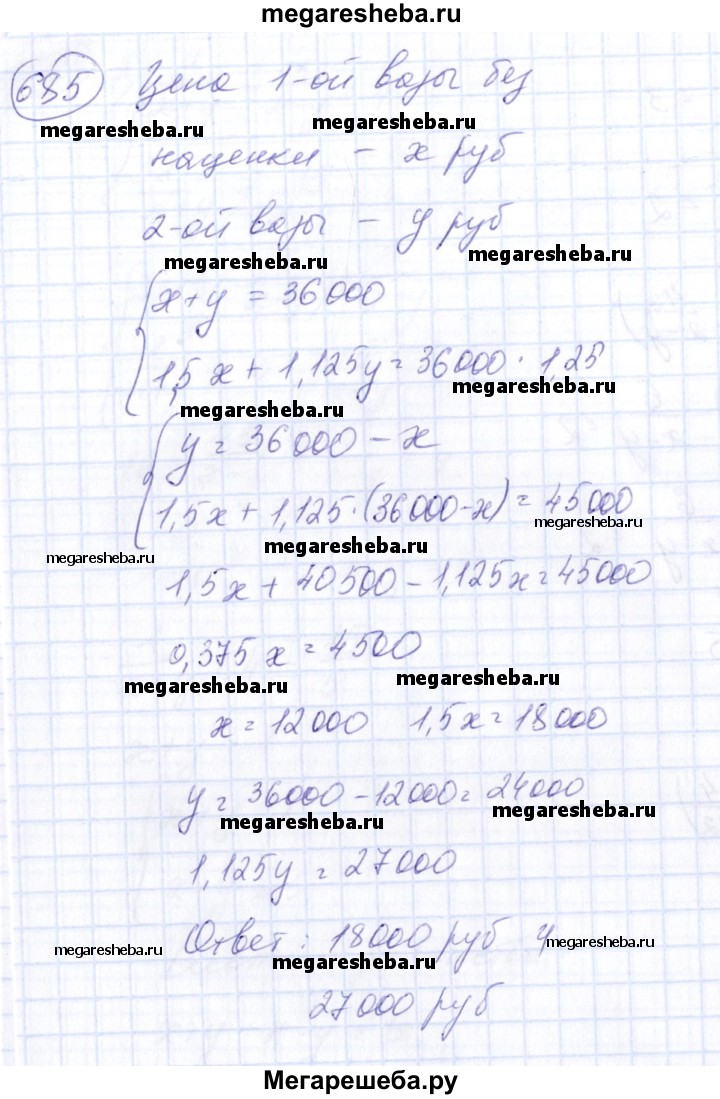 megaresheba.ru
685 Цена 1-ой вазы без
megaresheba.ru megaresheba.ru
наценки - x руб
2-ой вазы - y руб
megaresheba.ru megaresheba.ru
x+y = 36000
1,5x + 1,125y = 36000 · 1,25
megaresheba.ru megaresheba.ru
y = 36000 - x
1,5x + 1,125·(36000-x) = 45000
megaresheba.ru megaresheba.ru megaresheba.ru
1,5x + 40500 - 1,125x = 45000
0,375x = 4500
megaresheba.ru megaresheba.ru
x = 12000 1,5x = 18000
y = 36000 - 12000 = 24000
megaresheba.ru megaresheba.ru
1,125y = 27000
Ответ: 18000 руб и
megaresheba.ru megaresheba.ru megaresheba.ru
27000 руб
Мегарешеба.ру